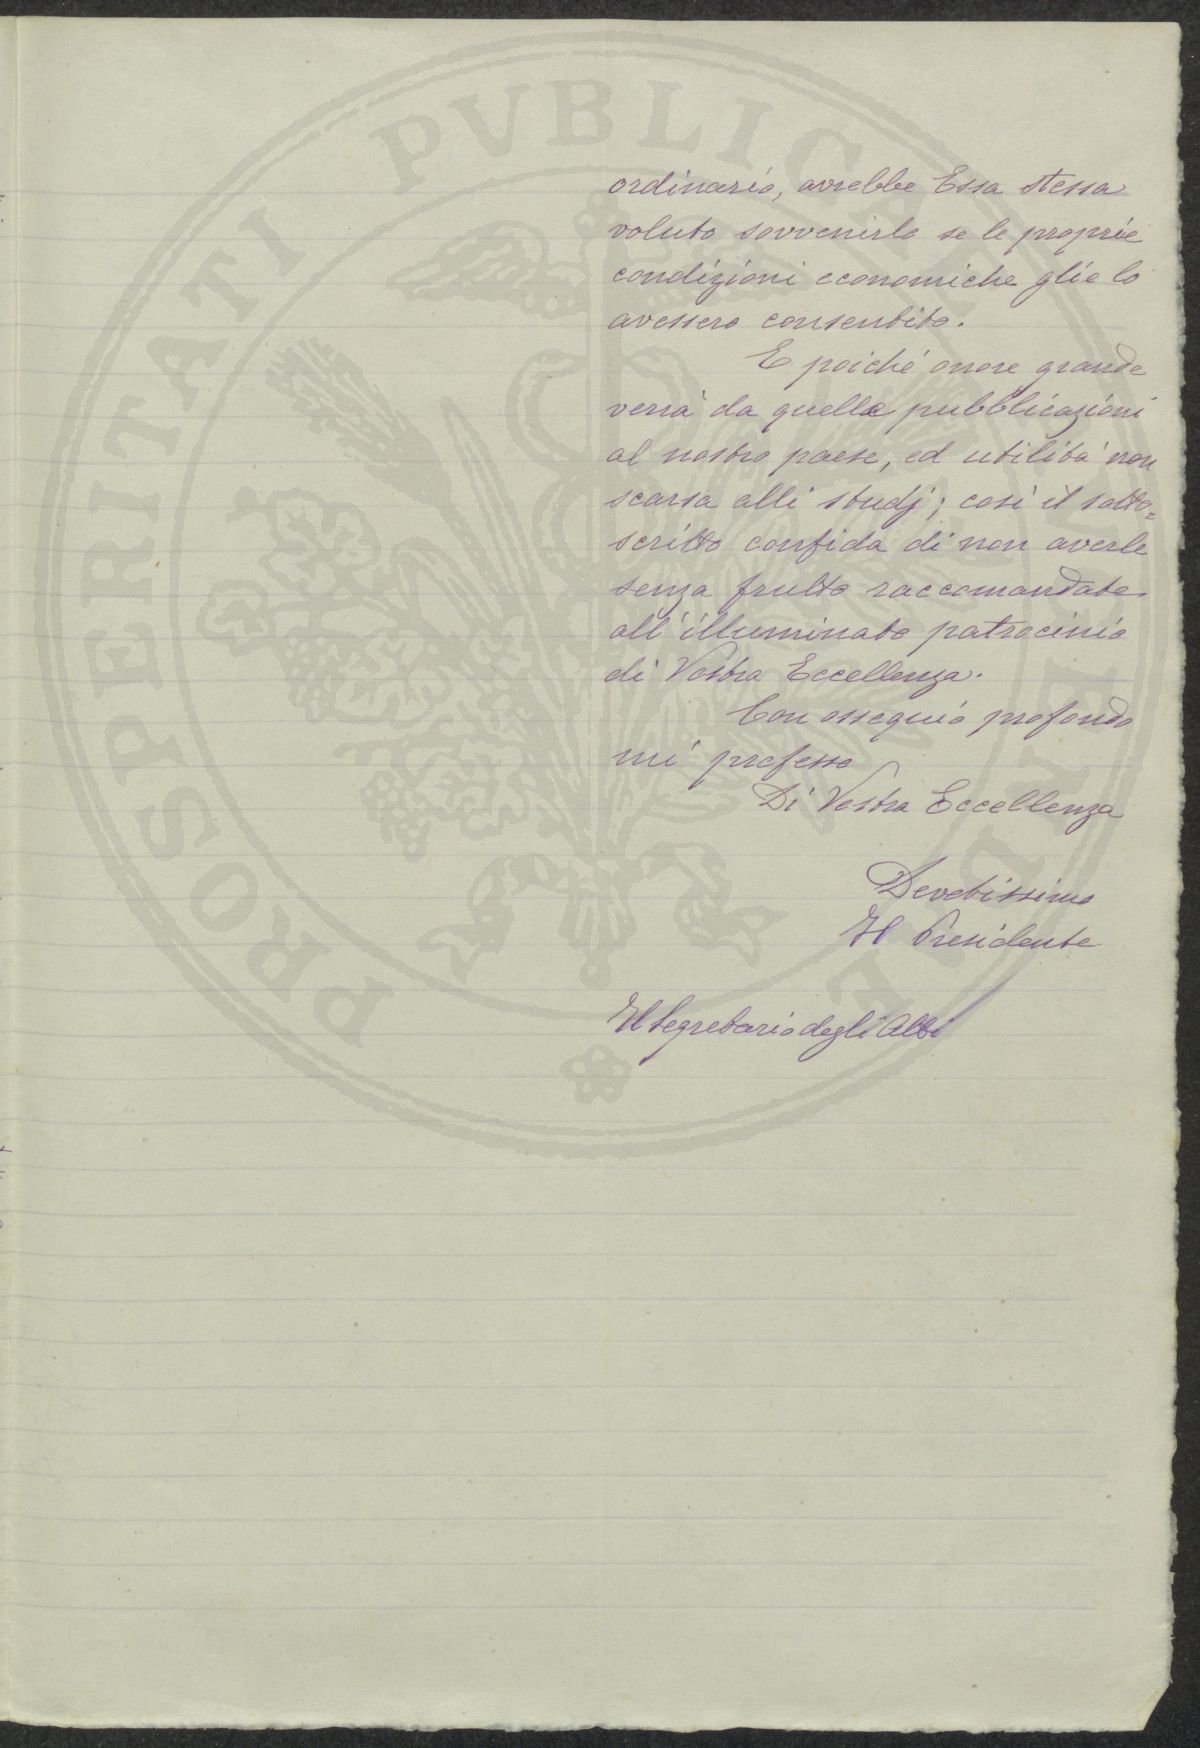 PROSPERITATI PVBLICAE
ordinario, avrebbe Essa stessa
voluto sovvenirlo se le proprie
condizioni economiche glie lo
avessero consentito.
E poiché onore grande
verrà da quelle pubblicazioni
al nostro paese, ed utilità non
scarsa alli studj; così il sotto=
scritto confida di non averle
senza frutto raccomandate
all'illuminato patrocinio
di Vostra Eccellenza.
Con ossequio profondo
mi professo
Di Vostra Eccellenza
Devotissimo
Il Presidente
Il Segretario degli Atti